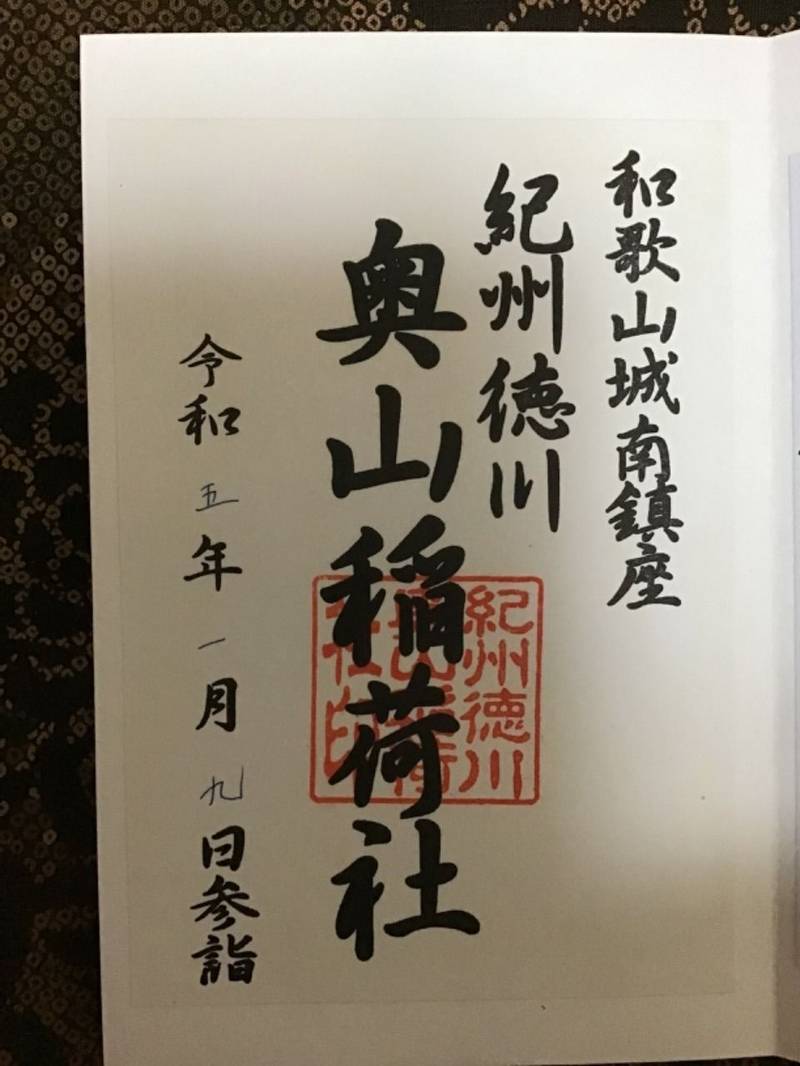 和歌山城南鎮座
紀州徳川
奥山稲荷社
令和五年一月九日参詣
紀州徳川